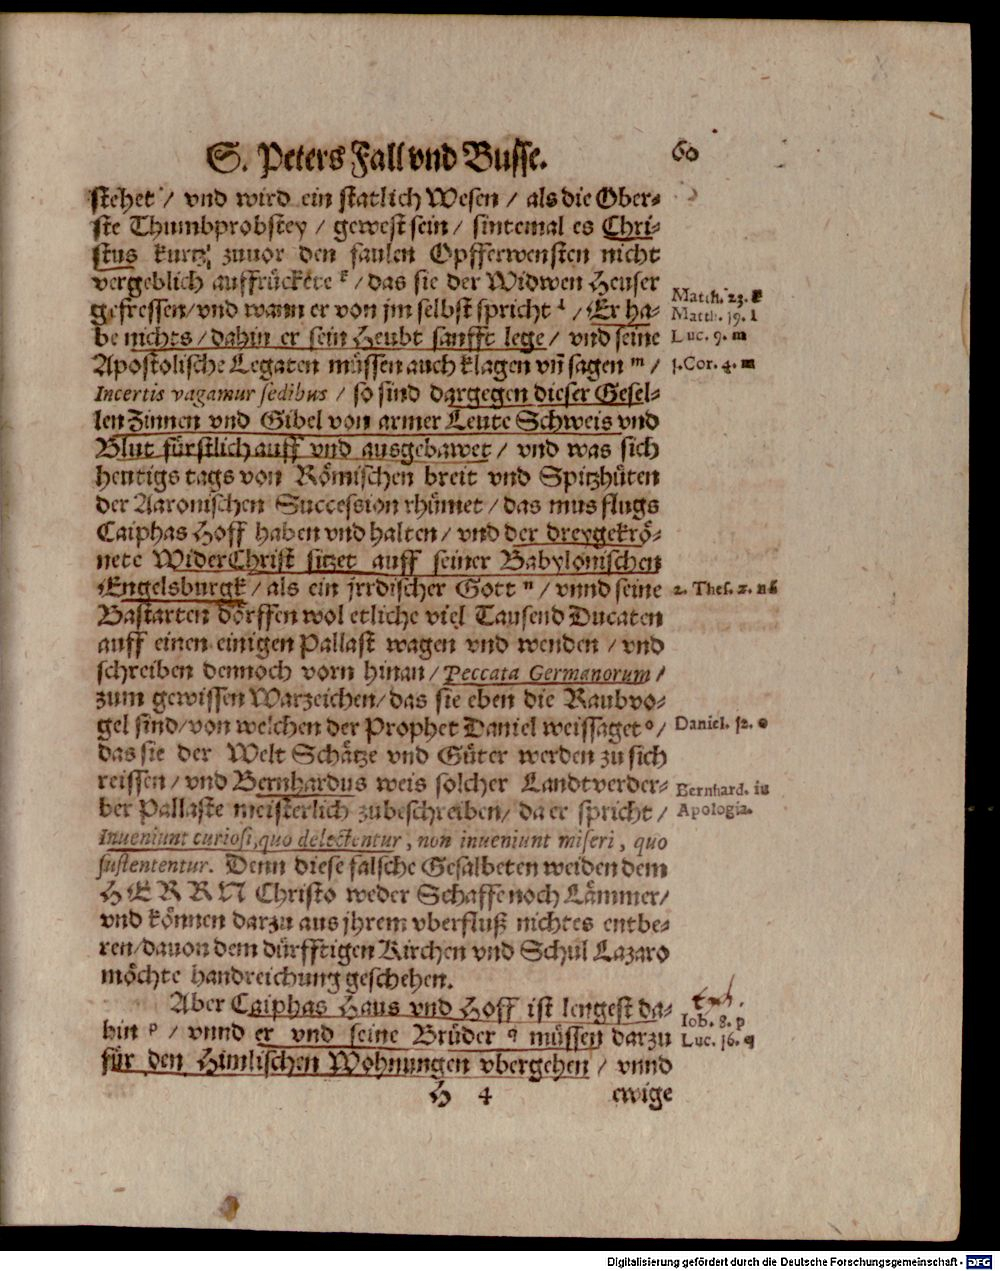 S. Peters Fall vnd Busse. 60
stehet / vnd wird ein statlich Wesen / als die Ober-
ste Thumbprobstey / gewest sein / sintemal es Chri-
stus kurtz zuuor den faulen Opfferwensten nicht
vergeblich auffrückete k / das sie der Widwen Heuser
gefressen / vnd wann er von jm selbst spricht l / Er ha-
be nichts / dahin er sein Heubt sanfft lege / vnd seine
Apostolische Legaten müssen auch klagen vñ sagen m /
Incertis vagamur sedibus / so sind dargegen dieser Gesel-
len Zinnen vnd Gibel von armer Leute Schweis vnd
Blut fürstlich auff vnd ausgebawet / vnd was sich
heutigs tags von Römischen breit vnd Spitzhüten
der Aaronischen Succession rhümet / das mus flugs
Caiphas Hoff haben vnd halten / vnd der dreygekrö-
nete WiderChrist sitzet auff seiner Babylonischen
Engelsburgk / als ein jrrdischer Gott n / vnnd seine
Bastarten dörffen wol etliche viel Tausend Ducaten
auff einen einigen Pallast wagen vnd wenden / vnd
schreiben dennoch vorn hinan / Peccata Germanorum /
zum gewissen Warzeichen / das sie eben die Raubvo-
gel sind / von welchen der Prophet Daniel weissaget o /
das sie der Welt Schätze vnd Güter werden zu sich
reissen / vnd Bernhardus weis solcher Landtverder-
ber Pallaste meisterlich zubeschreiben / da er spricht /
Inueniunt curiosi, quo delectentur, non inueniunt miseri, quo
sustententur. Denn diese falsche Gesalbeten weiden dem
HERRN Christo weder Schaffe noch Lämmer /
vnd können darzu aus jhrem vberfluß nichtes entbe-
ren / dauon dem dürfftigen Kirchen vnd Schul Lazaro
möchte handreichung geschehen.
Aber Caiphas Haus vnd Hoff ist lengest da-
hin p / vnnd er vnd seine Brüder q müssen darzu
für den Himlischen Wohnungen vbergehen / vnnd
H 4 ewige
Matth. 23. k
Matth. 19. l
Luc. 9. m
1. Cor. 4. m
2. Thes. 2. n
Daniel. 12. o
Bernhard. in
Apologia.
Iob. 8. p
Luc. 16. q
Digitalisierung gefördert durch die Deutsche Forschungsgemeinschaft - DFG